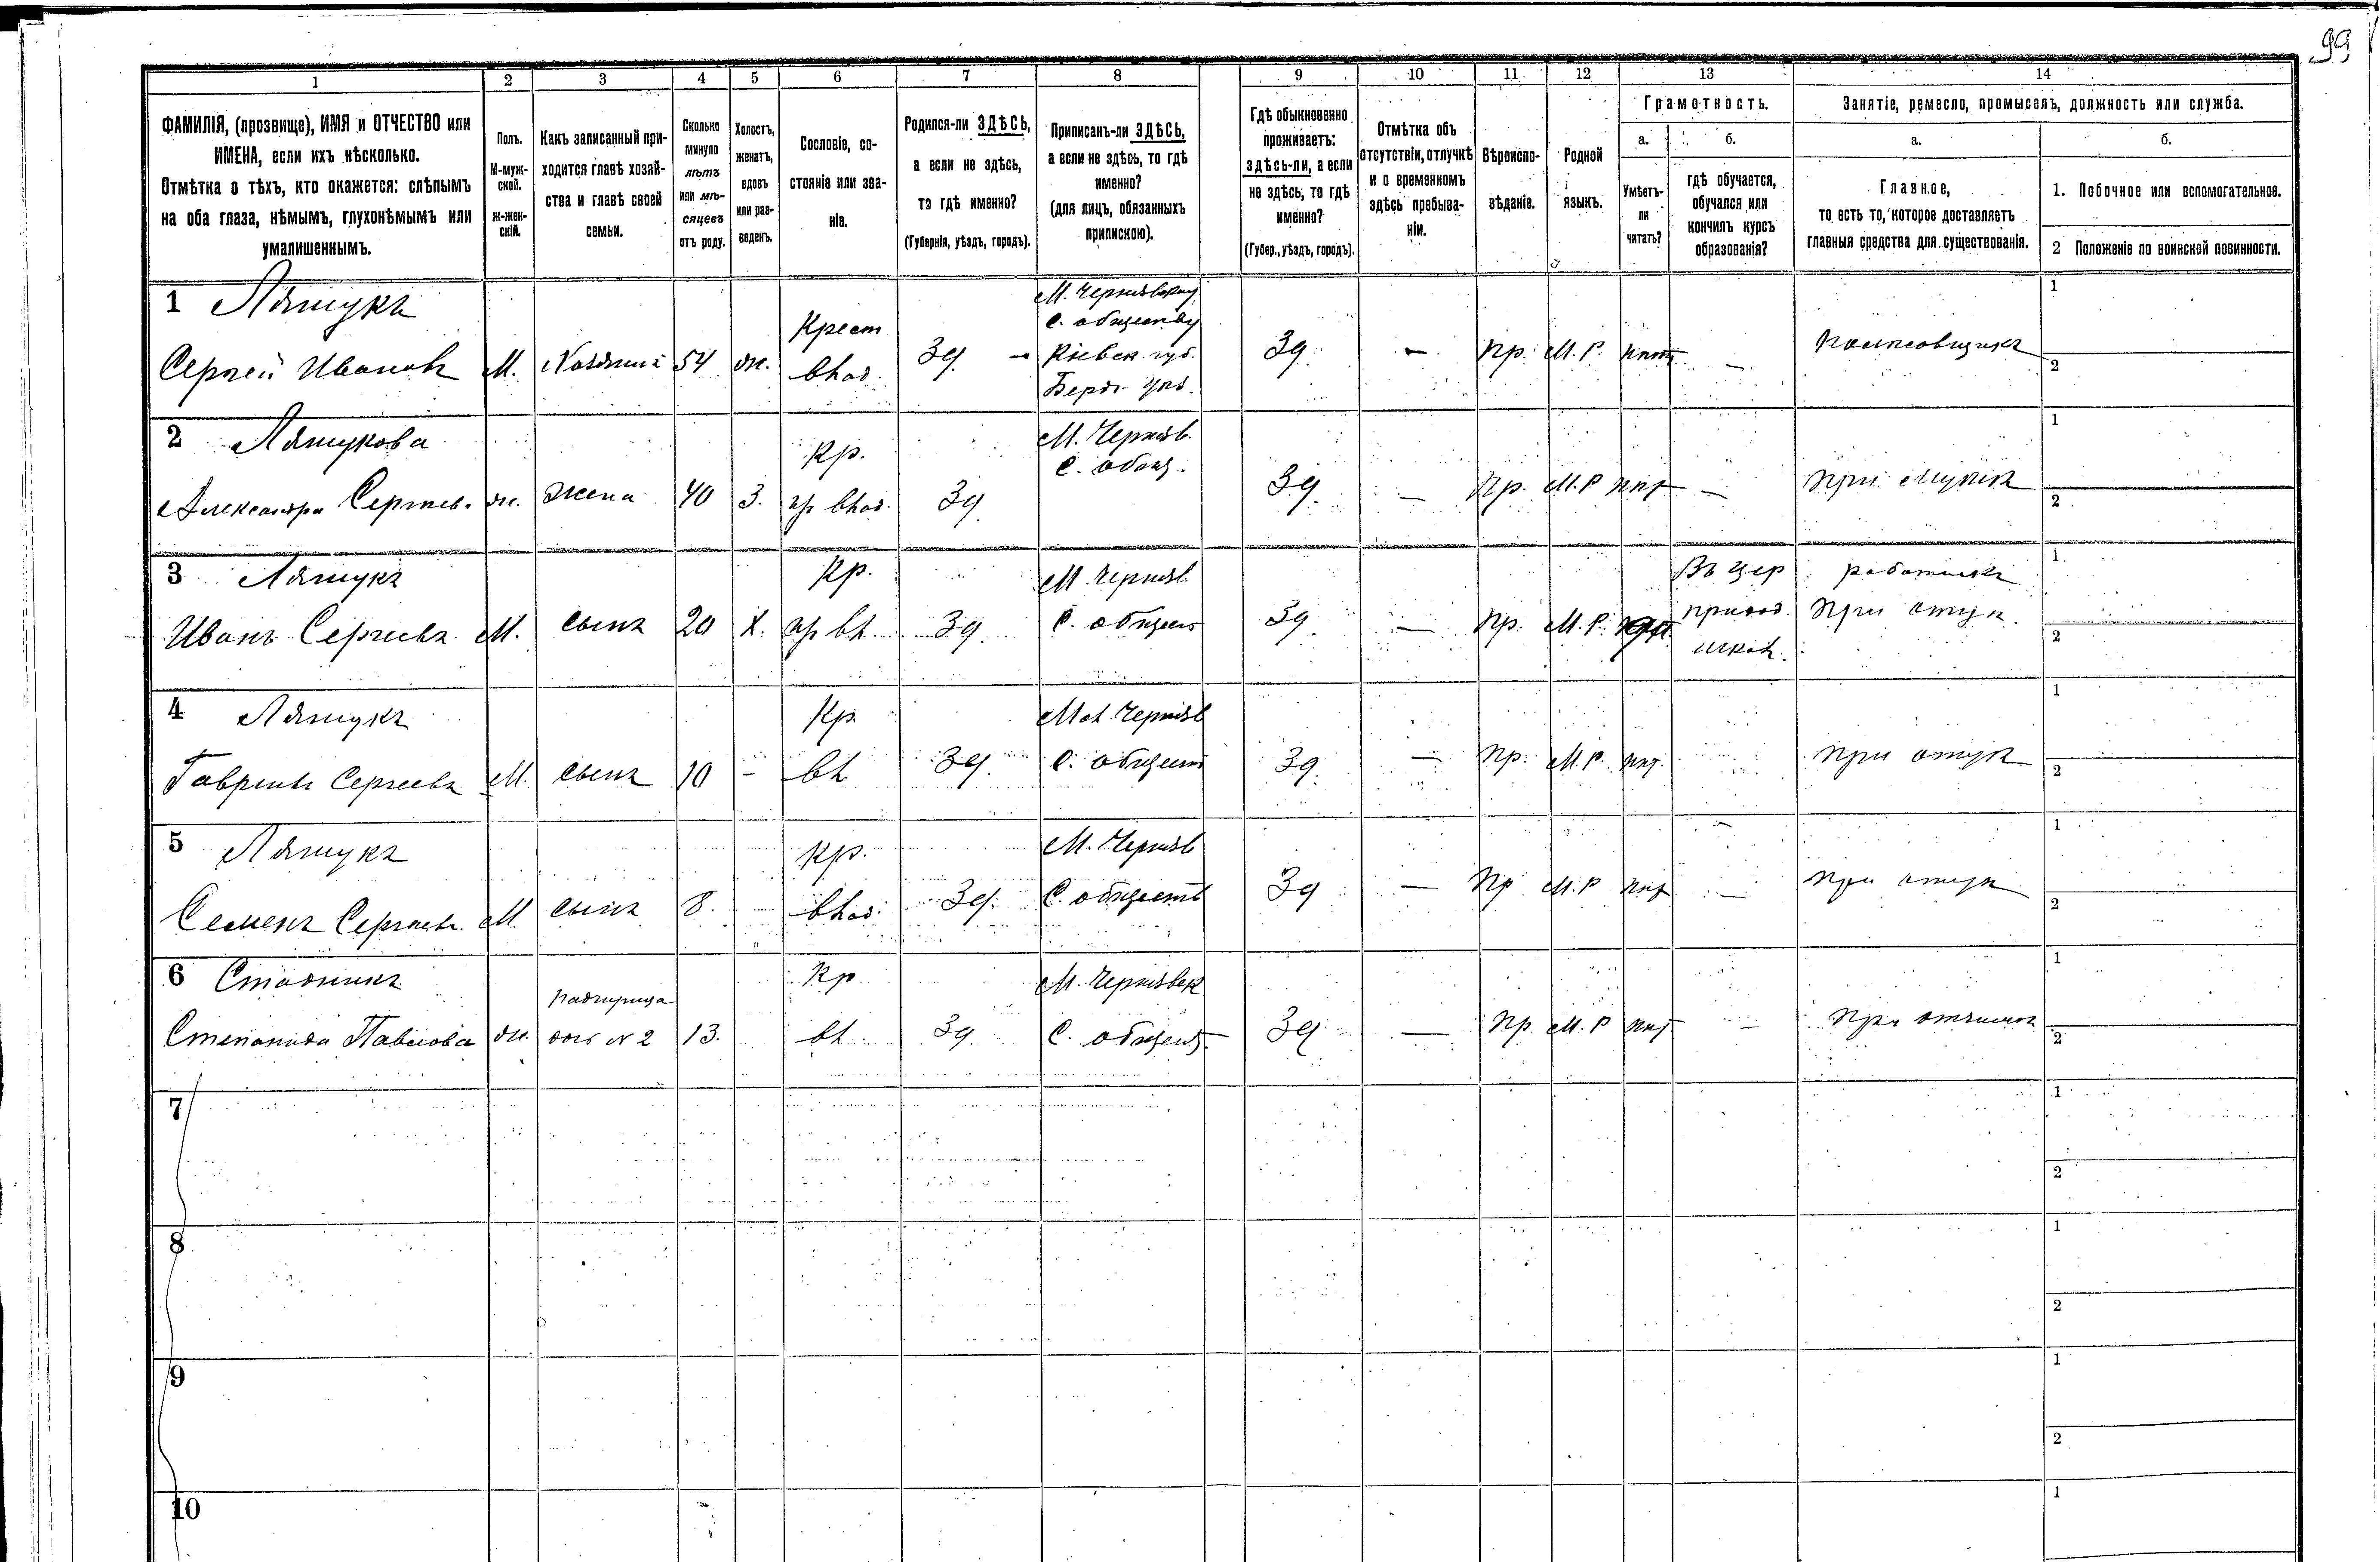 99
1 2 3 4 5 6 7 8 9 10 11 12 13 14
ФАМИЛІЯ, (прозвище), ИМЯ и ОТЧЕСТВО или
ИМЕНА, если ихъ нѣсколько.
Отмѣтка о тѣхъ, кто окажется: слѣпымъ
на оба глаза, нѣмымъ, глухонѣмымъ или
умалишеннымъ.
Полъ.
М-муж-
ской.
Ж-жен-
скій.
Какъ записанный при-
ходится главѣ хозяй-
ства и главѣ своей
семьи.
Сколько
минуло
лѣтъ
или мѣ-
сяцевъ
отъ роду.
Холостъ,
женатъ,
вдовъ
или раз-
веденъ.
Сословіе, со-
стояніе или зва-
ніе.
Родился-ли ЗДѢСЬ,
а если не здѣсь,
то гдѣ именно?
(Губернія, уѣздъ, городъ).
Приписанъ-ли ЗДѢСЬ,
а если не здѣсь, то гдѣ
именно?
(для лицъ, обязанныхъ
припискою).
Гдѣ обыкновенно
проживаетъ:
здѣсь-ли, а если
не здѣсь, то гдѣ
именно?
(Губер., уѣздъ, городъ).
Отмѣтка объ
отсутствіи, отлучкѣ
и о временномъ
здѣсь пребыва-
ніи.
Вѣроиспо-
вѣданіе.
Родной
языкъ.
Грамотность.
а.
Умѣетъ-
ли
читать?
б.
гдѣ обучается,
обучался или
кончилъ курсъ
образованія?
Занятіе, ремесло, промыселъ, должность или служба.
а.
Главное,
то есть то, которое доставляетъ
главныя средства для существованія.
б.
1. Побочное или вспомогательное.
2 Положеніе по воинской повинности.
1 Ляшукъ
Сергей Ивановъ М. 54 ж. Крест Зд. — Кіевск. губ. Зд. — Пр. М. Р. —
1
2
2 Ляшукова
Александра Сергѣев. ж. жена 40 З. Кр. Зд М. Черняв. С. общ. Зд. — Пр. М. Р —
1
2
3 Ляшукъ
Иванъ Сергеевъ М. сынъ 20 Х. Кр. Зд. М. Черняв. С. общест Зд. — Пр. М. Р.
Въ цер
приход.
школ.
работникъ
При отцѣ
1
2
4 Ляшукъ
Гаврилъ Сергеевъ М. сынъ 10 - Кр. Зд. С. общест Зд. — Пр. М. Р. При отцѣ
1
2
5 Ляшукъ
Семенъ Сергѣев. М сынъ 8. Кр. Зд. М. Черняв С. обществ Зд — Пр М. Р — При отцѣ
1
2
6 Стадникъ
Степанида Павлова ж. падчирица дочь № 2 13. Кр Зд. М. Чернявск С. общест Зд — Пр М. Р — При отчимѣ
1
2
7
1
2
8
1
2
9
1
2
10
1